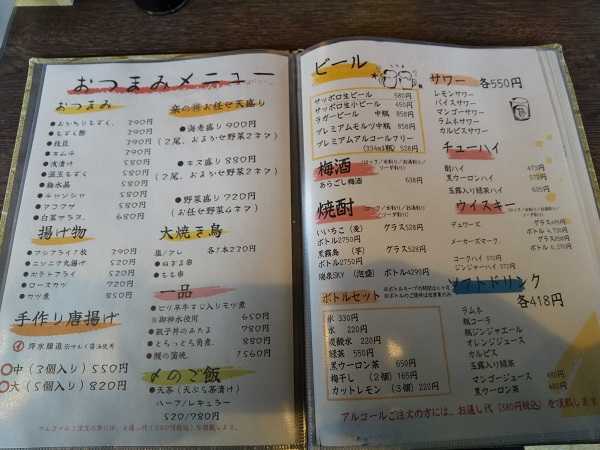 おつまみメニュー
おつまみ
●おいちいもずく 290円
●もずく酢 290円
●枝豆 290円
●キムチ 290円
●浅漬け 580円
●温玉もずく 580円
●梅水晶 580円
●チャンジャ 580円
●アコフグ 580円
●白菜サラダ 680円
揚げ物
●アジフライ1枚 290円
●ニンニク丸揚げ 520円
●ポテトフライ 520円
●ロースカツ 720円
●カツ煮 850円
手作り唐揚げ
○中(3個入り) 550円
○大(5個入り) 820円
楽の雅お任せ天盛り
●海老盛り 900円
(2尾、おまかせ野菜2ネタ)
●キス盛り 880円
(2尾、おまかせ野菜2ネタ)
●野菜盛り 720円
(お任せ野菜4ネタ)
大焼き鳥 各1本230円
●塩/タレ
●ねぎま串
●もも串
一品
●ピリ辛牛すじ入りモツ煮
※御神水使用 650円
●親子丼のあたま 780円
●とろっとろ角煮 880円
●鰻の蒲焼 1560円
〆のご飯
●天茶(天ぷら茶漬け)
ハーフ/レギュラー
520/780円
アルコールご注文の方には、お通し代(380円税込)を頂戴します。
ビール
サッポロ生ビール 580円
サッポロ生小ビール 450円
ラガービール 中瓶 858円
プレミアムモルツ中瓶 858円
プレミアムアルコールフリー
(334ml瓶) 528円
梅酒
(ロック/水割り/お湯割り/ソーダ割り)
あらごし梅酒 638円
焼酎
(ロック/水割り/お湯割り/ソーダ割り)
いいちこ(麦) グラス528円
ボトル2750円
黒霧島(芋) グラス528円
ボトル2750円
瑞泉SKY(泡盛) ボトル4290円
ボトルセット
氷 330円
水 220円
炭酸水 220円
緑茶 550円
黒ウーロン茶 650円
梅干し(2個) 165円
カットレモン(3個) 220円
サワー 各550円
レモンサワー
バイスサワー
マンゴーサワー
ラムネサワー
カルピスサワー
チューハイ
酎ハイ 473円
黒ウーロンハイ 570円
玉露入り緑茶ハイ 605円
ウイスキー
デュワーズ
メーカーズマーク
コークハイ 550円
ジンジャーハイ 550円
ソフトドリンク
各418円
ラムネ
瓶コーラ
瓶ジンジャエール
オレンジジュース
カルピス
玉露入り緑茶
マンゴージュース
黒ウーロン茶
アルコールご注文の方には、お通し代(380円税込)を頂戴します